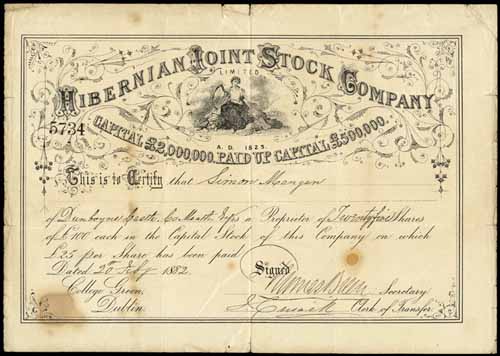 HIBERNIAN JOINT STOCK COMPANY
LIMITED
5734
A.D. 1825.
CAPITAL £2,000,000. PAID UP CAPITAL £500,000.
This is to Certify that Simon Mangan
of Dunboyne Castle Co. Meath Esq is a Proprietor of Twenty five Shares
of £100 each in the Capital Stock of this Company on which
£25 per Share has been paid
Dated 20 July 1882
College Green,
Dublin.
Signed
Secretary
Clerk of Transfer